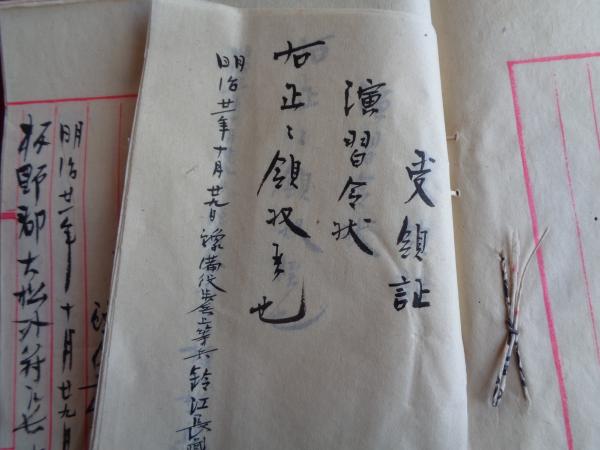 受領証
演習令状
右正ニ領收候也
明治廿一年十月廿九日 豫備役歩兵上等兵 鈴江長
明治廿一年十月廿九日
板野郡大松外